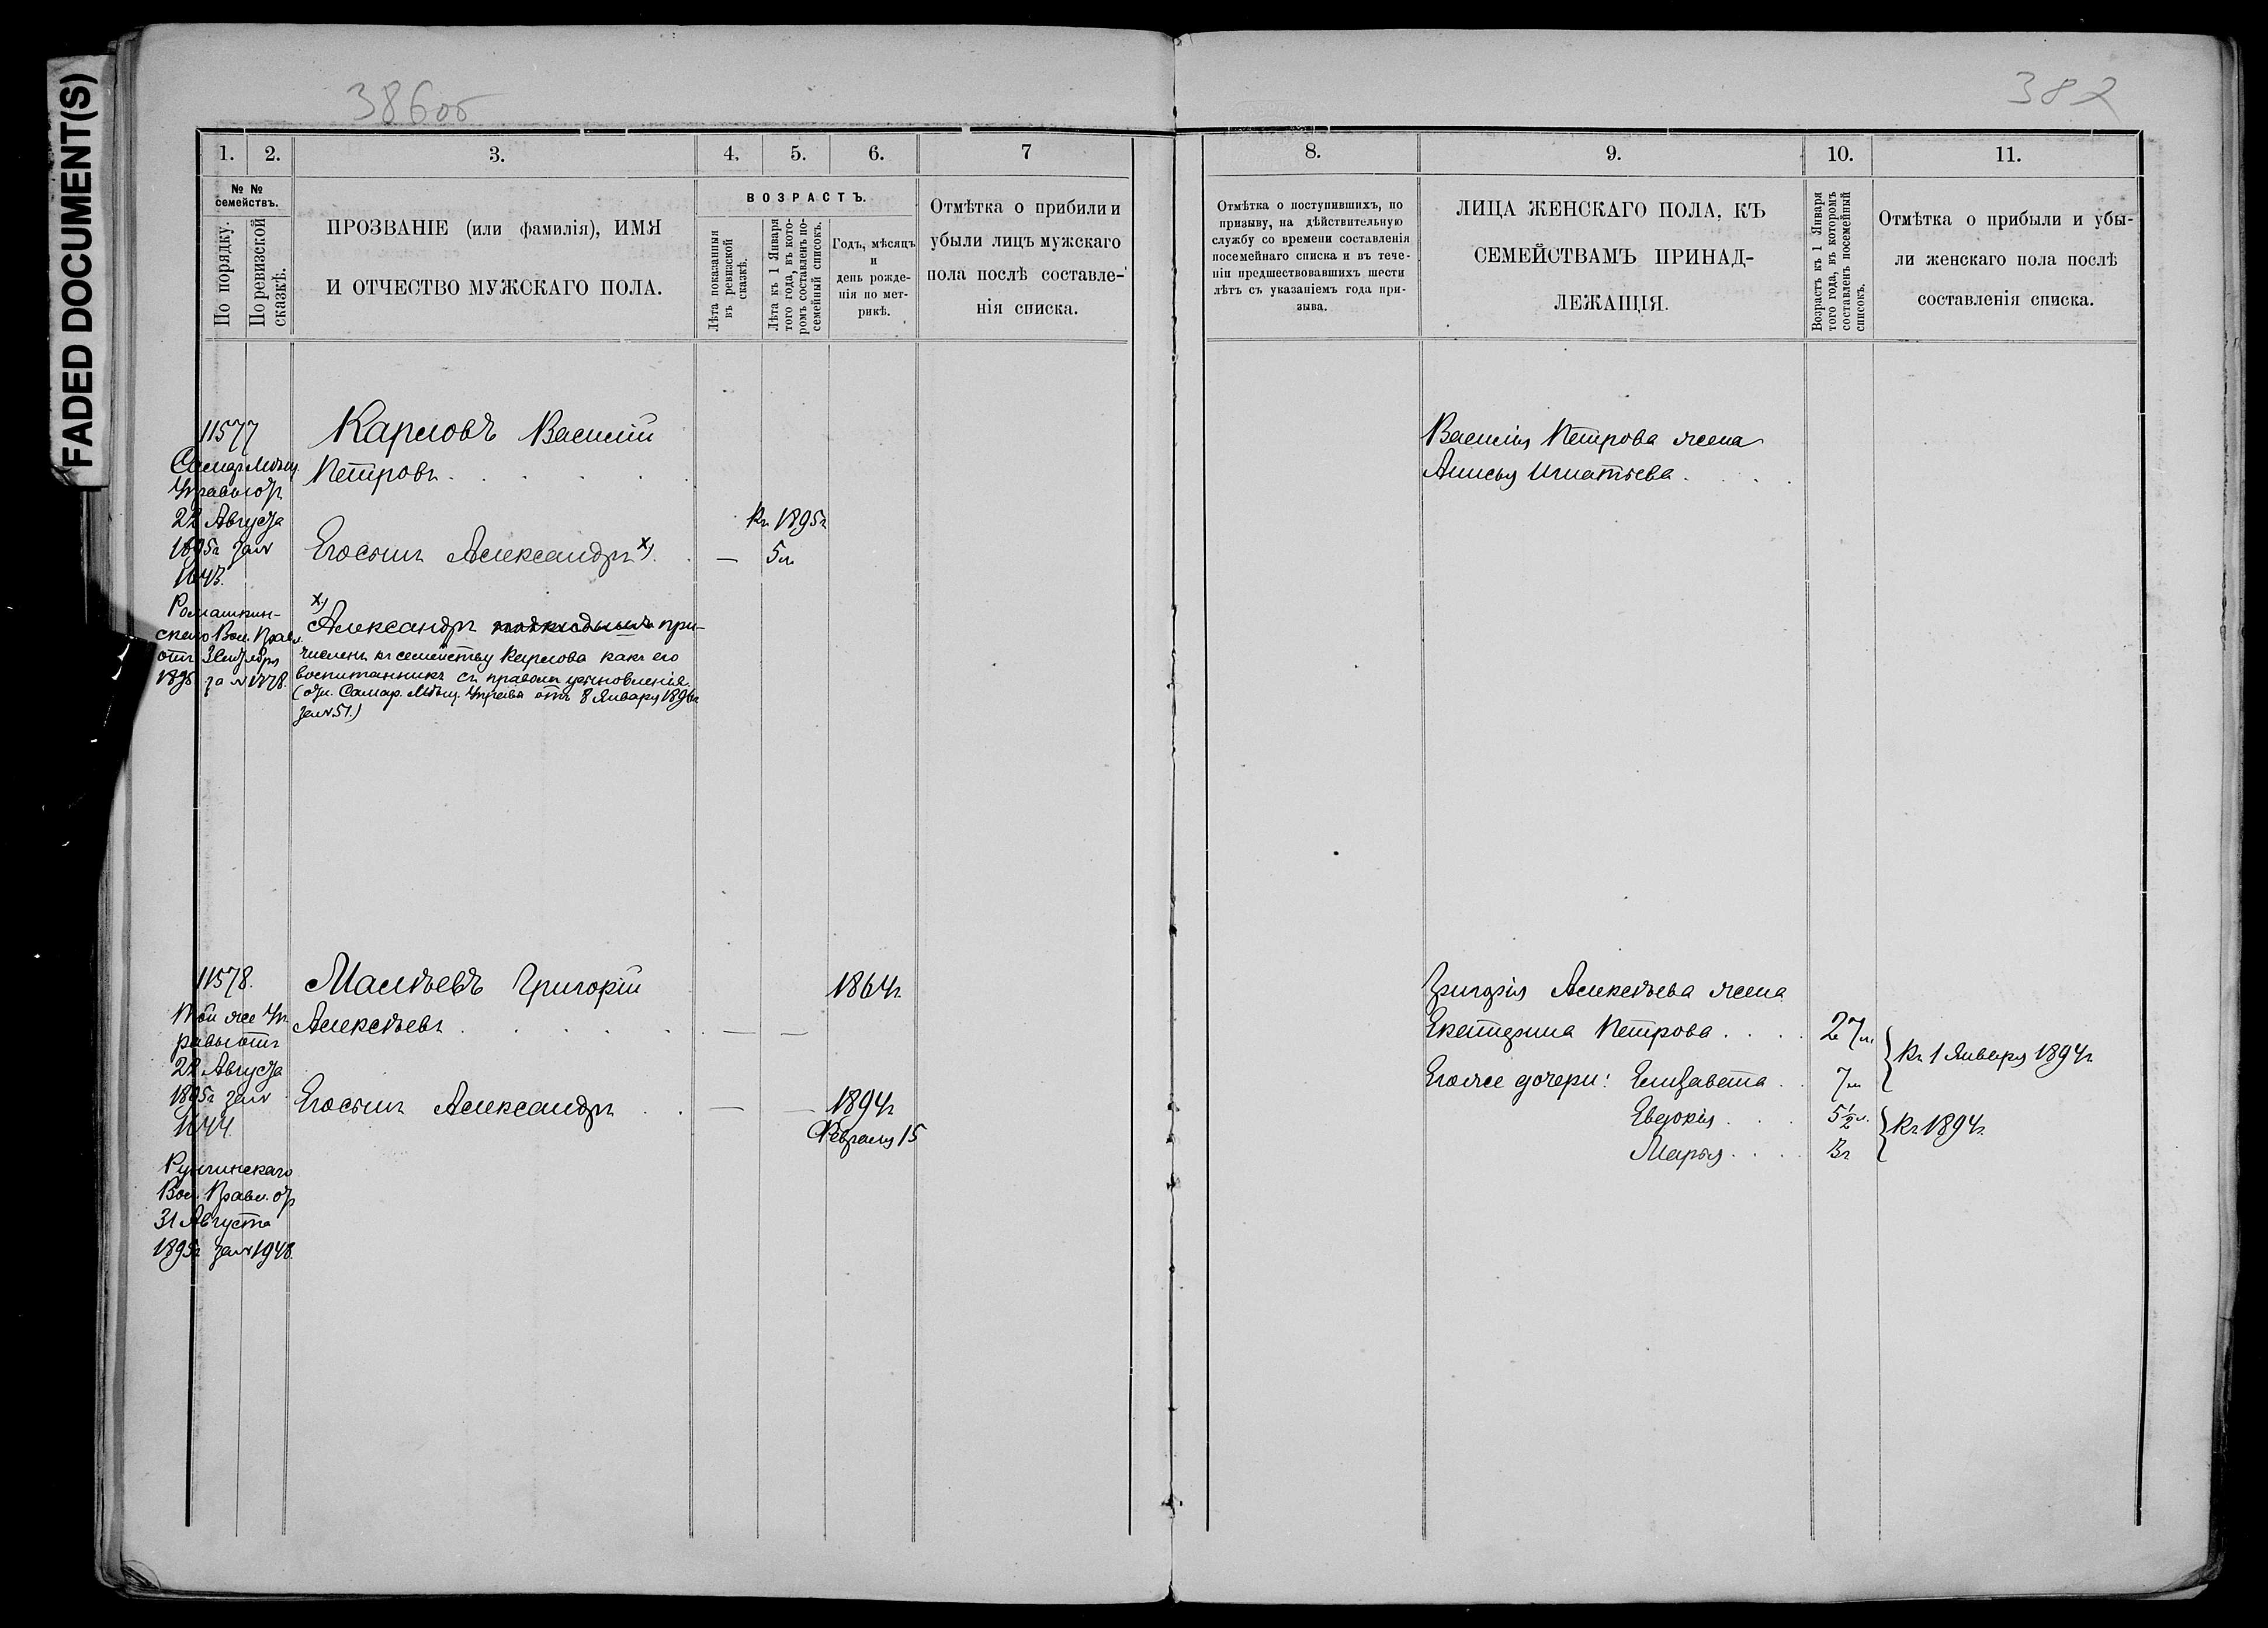 FADED DOCUMENT(S)
386об
382
1.
2.
3.
4.
5.
6.
7
№ №
семействъ.
По порядку.
По ревизской
сказкѣ.
ПРОЗВАНІЕ (или фамилія), ИМЯ
И ОТЧЕСТВО МУЖСКАГО ПОЛА.
ВОЗРАСТЪ.
Лѣта показанныя
въ ревизской
сказкѣ.
Лѣта къ 1 Января
того года, въ кото-
ромъ составленъ по-
семейный списокъ.
Годъ, мѣсяцъ
и
день рожде-
нія по мет-
рикѣ.
Отмѣтка о прибыли и
убыли лицъ мужскаго
пола послѣ составле-
нія списка.
11577
Самар. Мѣщ.
Управы отъ
22 Августа
1895г за №
1643.
Ромашкин-
скаго Вол. Правл.
отъ 3 Сентября
1895 за № 1778.
Карловъ Василій
Петровъ
Къ 1895г
Его сынъ Александръ х) — 5 л.
х)
Александръ подкидышъ при-
численъ къ семейству Карлова какъ его
воспитанникъ съ правомъ усыновленія.
(отн. Самар. Мѣщ. Управы отъ 8 Января 1896г
за № 51.)
11578.
Той же Уп-
равы отъ
22 Августа
1895г за №
1644
Вол. Правл. отъ
31 Августа
1895г за № 1948.
Малѣевъ Григорій 1864г.
Алексѣевъ — —
Его сынъ Александръ — — 1894г
Февраля 15
8.
9.
10.
11.
Отмѣтка о поступившихъ, по
призыву, на дѣйствительную
службу со времени составленія
посемейнаго списка и въ тече-
ніи предшествовавшихъ шести
лѣтъ съ указаніемъ года при-
зыва.
ЛИЦА ЖЕНСКАГО ПОЛА, КЪ
СЕМЕЙСТВАМЪ ПРИНАД-
ЛЕЖАЩІЯ.
Возрастъ къ 1 Января
того года, въ которомъ
составленъ посемейный
списокъ.
Отмѣтка о прибыли и убы-
ли женскаго пола послѣ
составленія списка.
Василія Петрова жена
Анисья Игнатьева
Григорія Алексѣева жена
Екатерина Петрова 27 л.
Къ 1 Января 1894г
Его же дочери: Елизавета 7 л.
Евдокія 5½ л.
Къ 1894г.
Марья 3г